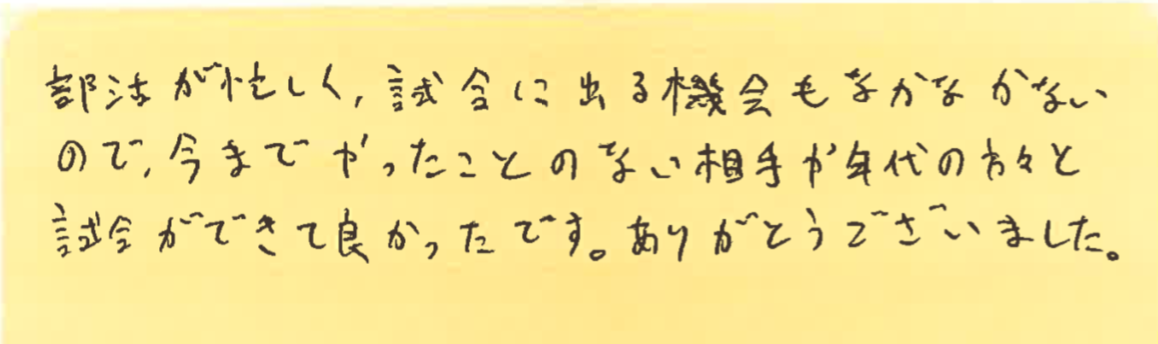 部活が忙しく,試合に出る機会もなかなかない
ので,今までやったことのない相手や年代の方々と
試合ができて良かったです。ありがとうございました。